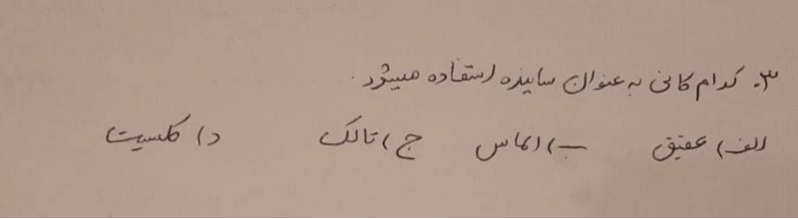 ۳. کدام کانی به عنوان ساینده استفاده میشود.
الف) عقیق ب) الماس ج) تالک د) کلسیت